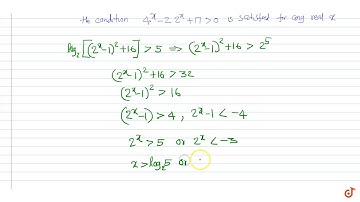 the condition 4^x - 2 2^x + 17 > 0 is satisfied for any real x
log₂[(2^x-1)²+16] > 5 ⇒ (2^x-1)²+16 > 2⁵
(2^x-1)²+16 > 32
(2^x-1)² > 16
(2^x-1) > 4 , 2^x-1 < -4
2^x > 5 or 2^x < -3
x > log₂5 or
doubtnut